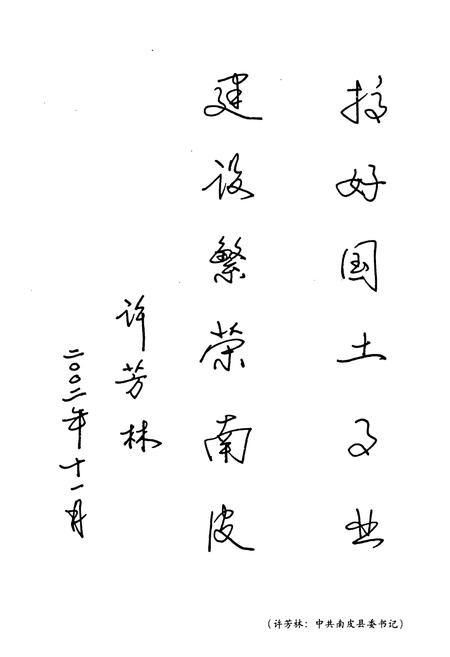 搞好国土事业
建设繁荣南皮
许芳林
二〇〇二年十一月
（许芳林：中共南皮县委书记）